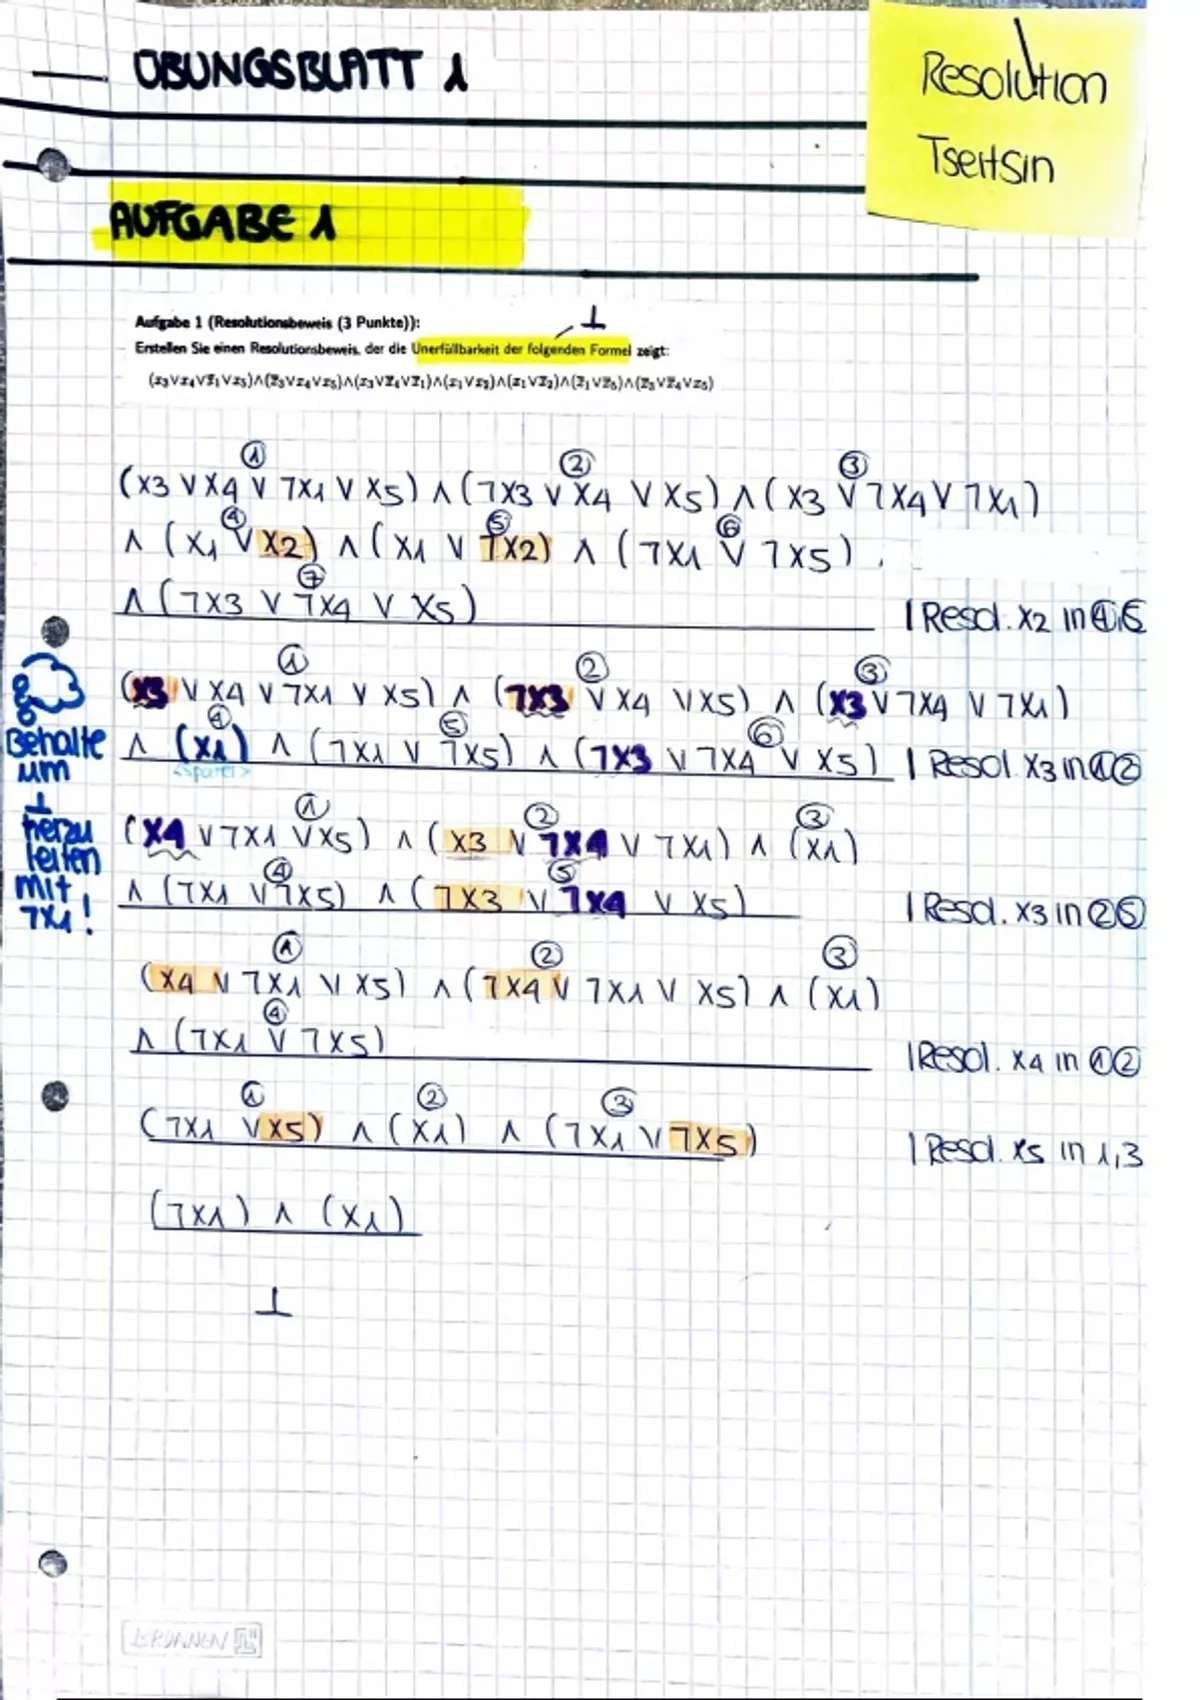 ÜBUNGSBLATT 1
Resolution
Tseitsin
AUFGABE 1
Aufgabe 1 (Resolutionsbeweis (3 Punkte)):
⊥
Erstellen Sie einen Resolutionsbeweis, der die Unerfüllbarkeit der folgenden Formel zeigt:
(x₃∨x₄∨x̅₁∨x₅)∧(x̅₃∨x₄∨x₅)∧(x₃∨x̅₄∨x̅₁)∧(x₁∨x₂)∧(x₁∨x̅₂)∧(x̅₁∨x̅₅)∧(x̅₃∨x̅₄∨x₅)
① ② ③
(x3 ∨ x4 ∨ ¬x1 ∨ x5) ∧ (¬x3 ∨ x4 ∨ x5) ∧ (x3 ∨ ¬x4 ∨ ¬x1)
④ ⑤ ⑥
∧ (x1 ∨ x2) ∧ (x1 ∨ ¬x2) ∧ (¬x1 ∨ ¬x5)
⑦
∧ (¬x3 ∨ ¬x4 ∨ x5) | Resol. x2 in ④,⑤
① ② ③
(x3 ∨ x4 ∨ ¬x1 ∨ x5) ∧ (¬x3 ∨ x4 ∨ x5) ∧ (x3 ∨ ¬x4 ∨ ¬x1)
④ ⑤ ⑥
∧ (x1) ∧ (¬x1 ∨ ¬x5) ∧ (¬x3 ∨ ¬x4 ∨ x5) | Resol. x3 in ①②
<später>
Behalte
um
⊥
herzu
leiten
mit
¬x1!
① ② ③
(x4 ∨ ¬x1 ∨ x5) ∧ (x3 ∨ ¬x4 ∨ ¬x1) ∧ (x1)
④ ⑤
∧ (¬x1 ∨ ¬x5) ∧ (¬x3 ∨ ¬x4 ∨ x5) | Resol. x3 in ②⑤
① ② ③
(x4 ∨ ¬x1 ∨ x5) ∧ (¬x4 ∨ ¬x1 ∨ x5) ∧ (x1)
④
∧ (¬x1 ∨ ¬x5) | Resol. x4 in ①②
① ② ③
(¬x1 ∨ x5) ∧ (x1) ∧ (¬x1 ∨ ¬x5) | Resol. x5 in 1,3
(¬x1) ∧ (x1)
⊥
BRUNNEN